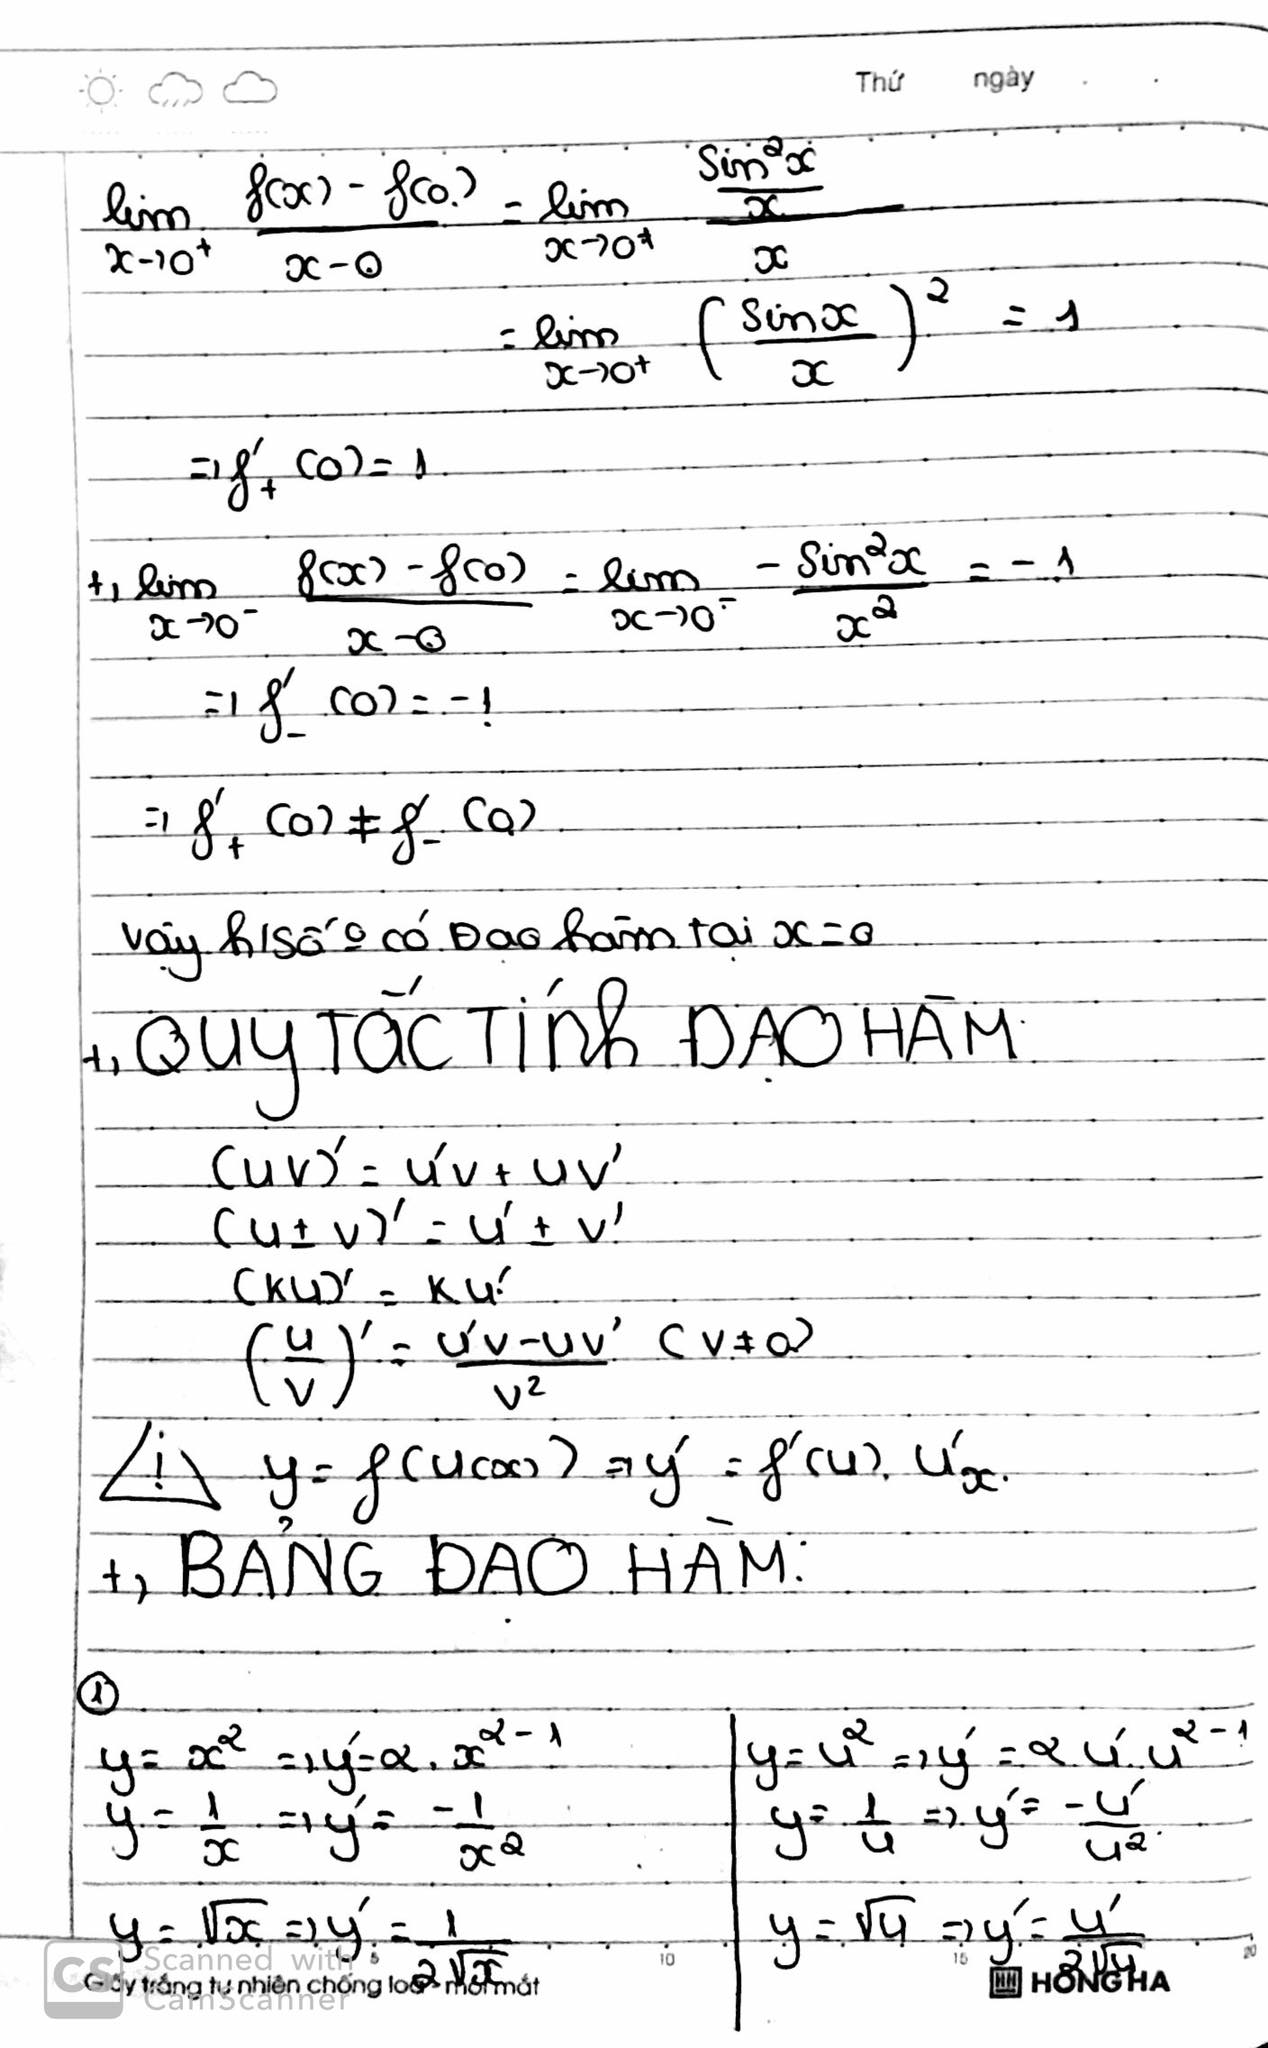 Thứ ngày
lim x→0⁺ (f(x) - f(0)) / (x - 0) = lim x→0⁺ (sin²x / x) / x
= lim x→0⁺ (sinx / x)² = 1
⇒ f'₊ (0) = 1
+, lim x→0⁻ (f(x) - f(0)) / (x - 0) = lim x→0⁻ - sin²x / x² = -1
⇒ f'₋ (0) = -1
⇒ f'₊ (0) ≠ f'₋ (0)
Vậy h/số o có Đạo hàm tại x = 0
+, QUY TẮC TÍNH ĐẠO HÀM:
(uv)' = u'v + uv'
(u ± v)' = u' ± v'
(ku)' = ku'
(u/v)' = (u'v - uv') / v² (v ≠ 0)
! y = f(u(x)) ⇒ y' = f'(u). u'x.
+, BẢNG ĐẠO HÀM:
①
y = x^α ⇒ y' = α . x^(α-1)
y = 1/x ⇒ y' = -1/x²
y = √x ⇒ y' = 1/(2√x)
y = u^α ⇒ y' = α u' . u^(α-1)
y = 1/u ⇒ y' = -u'/u²
y = √u ⇒ y' = u'/(2√u)
5 10 15 20
CS Scanned with
CamScanner
Giấy trắng tự nhiên chống loá mỏi mắt
HỒNG HÀ